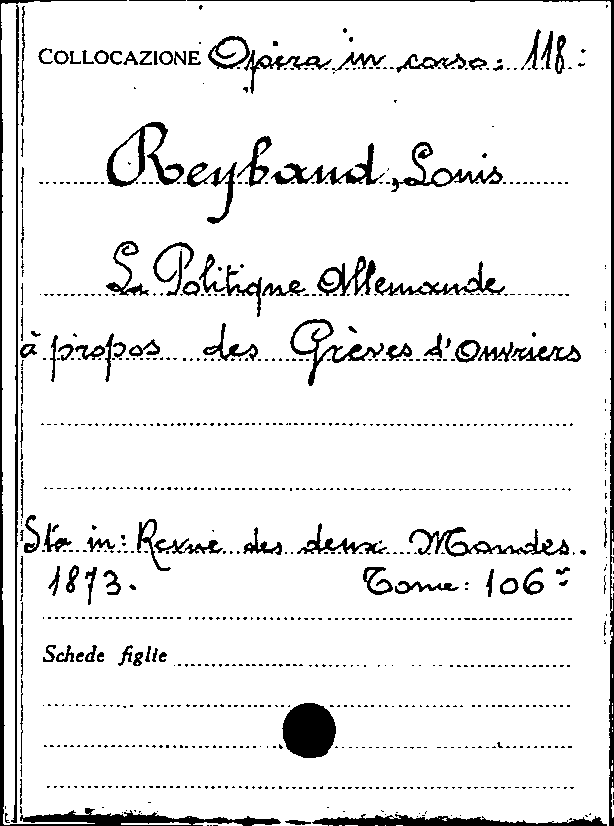 COLLOCAZIONE Opera in corso: 118:
Reybaud, Louis
La Politique Allemande
à propos des Grèves d'Ouvriers
Sta in: Revue des deux Mondes.
1873. Tome: 106
Schede figlie